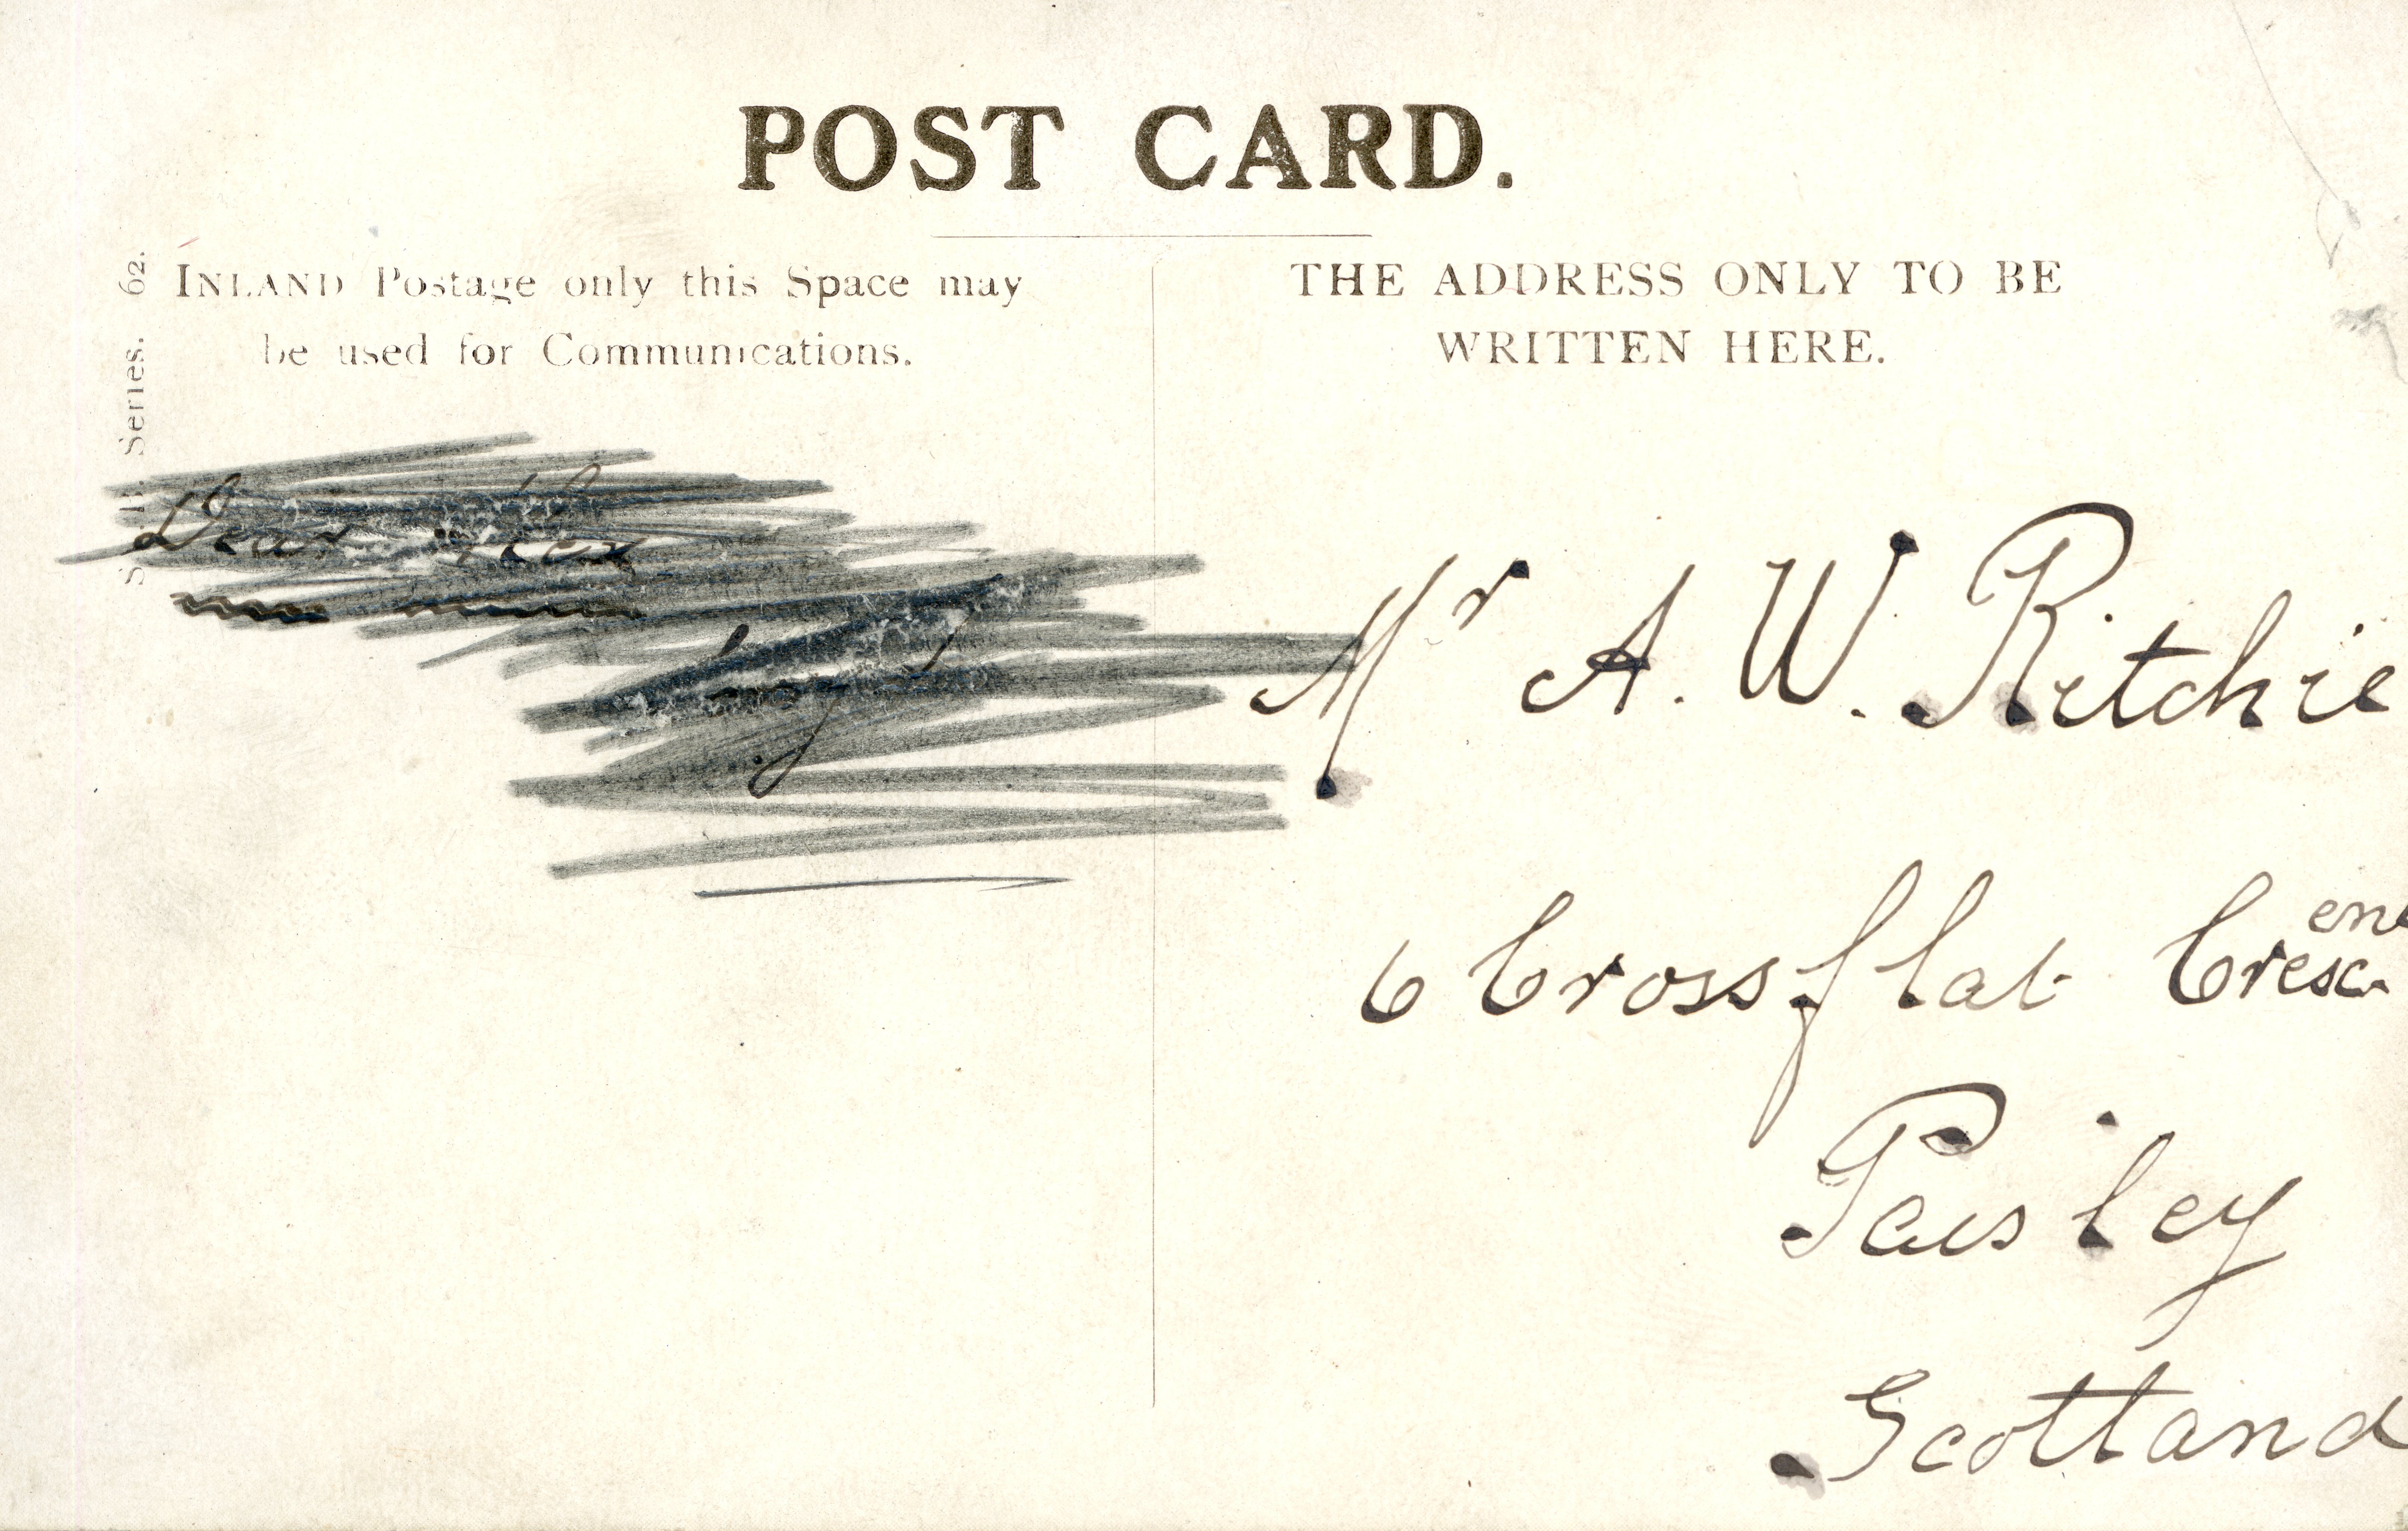 POST CARD.
INLAND Postage only this Space may
be used for Communications.
THE ADDRESS ONLY TO BE
WRITTEN HERE.
Series. 62.
Dear
Mr A. W. Ritchie
6 Crossflat Crescent
Paisley
Scotland